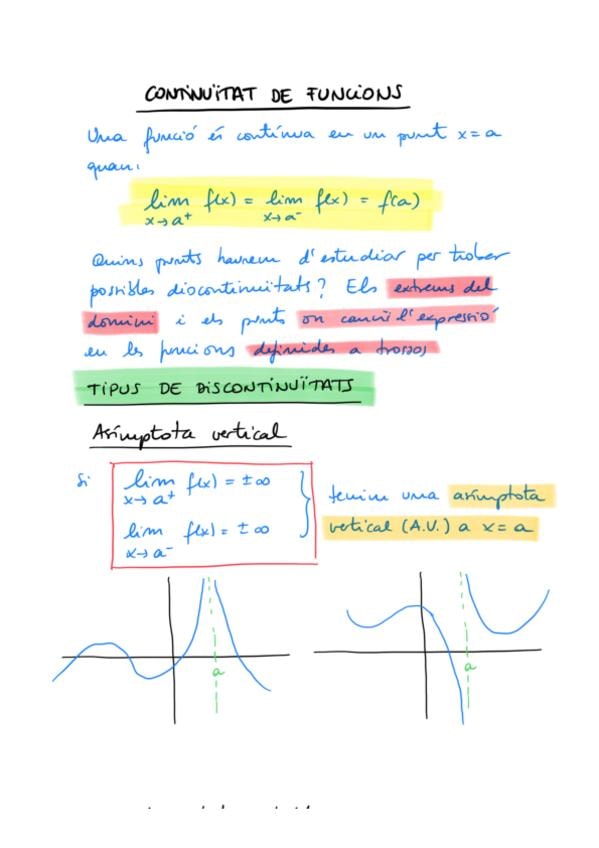 CONTINUÏTAT DE FUNCIONS
Una funció és contínua en un punt x = a
quan:
lim f(x) = lim f(x) = f(a)
x→a⁺ x→a⁻
Quins punts haurem d'estudiar per trobar
possibles discontinuïtats? Els extrems del
domini i els punts on canviï l'expressió
en les funcions definides a trossos
TIPUS DE DISCONTINUÏTATS
Asímptota vertical
Si
lim f(x) = ±∞
x→a⁺
lim f(x) = ±∞
x→a⁻
tenim una asímptota
vertical (A.V.) a x = a
a
a